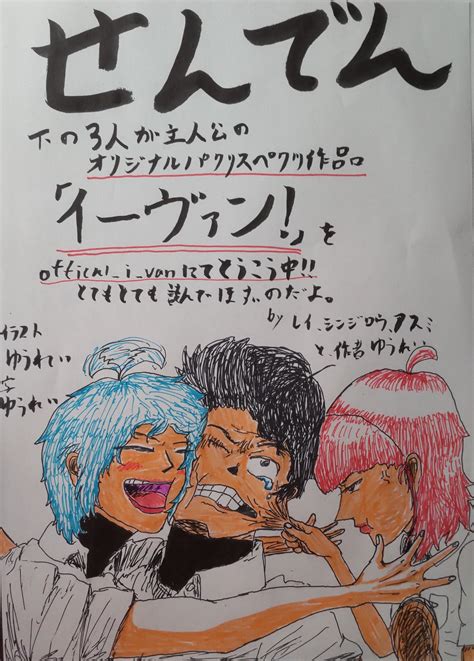 せんでん
下の3人が主人公の
オリジナルパクリスペクリ作品
「イーヴァン!」を
offical_i_vanにてとうこう中!!
とてもとても読んでほすぃのだよ。
by レイ、シンジロウ、アスミ
と、作者ゆうれい
イラスト
ゆうれい
ゆうれい